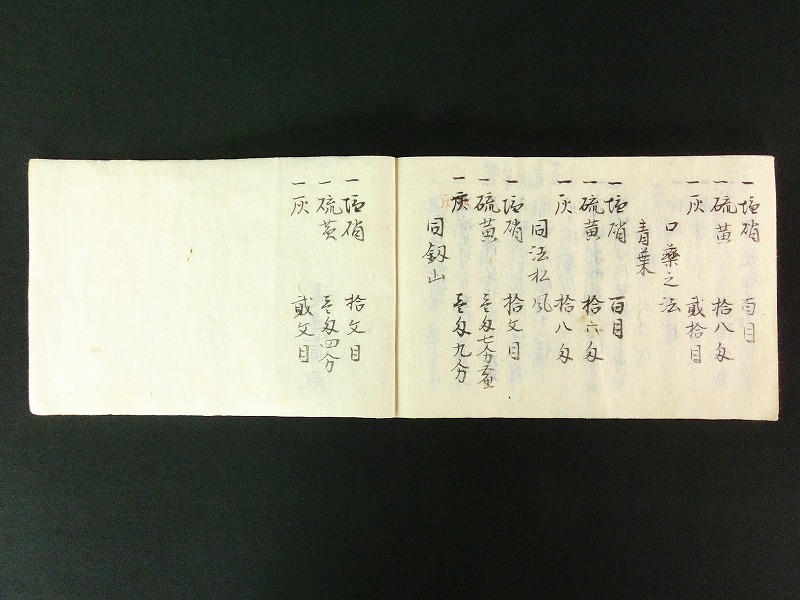 一塩硝 百目
一硫黄 拾八匁
一灰 貮拾目
口薬之法
青葉
一塩硝 百目
一硫黄 拾六匁
一灰 拾八匁
同法松風
一塩硝 拾文目
一硫黄 壱匁七分
一灰 壱匁九分
同釼山
一塩硝 拾文目
一硫黄 壱匁四分
一灰 貮文目